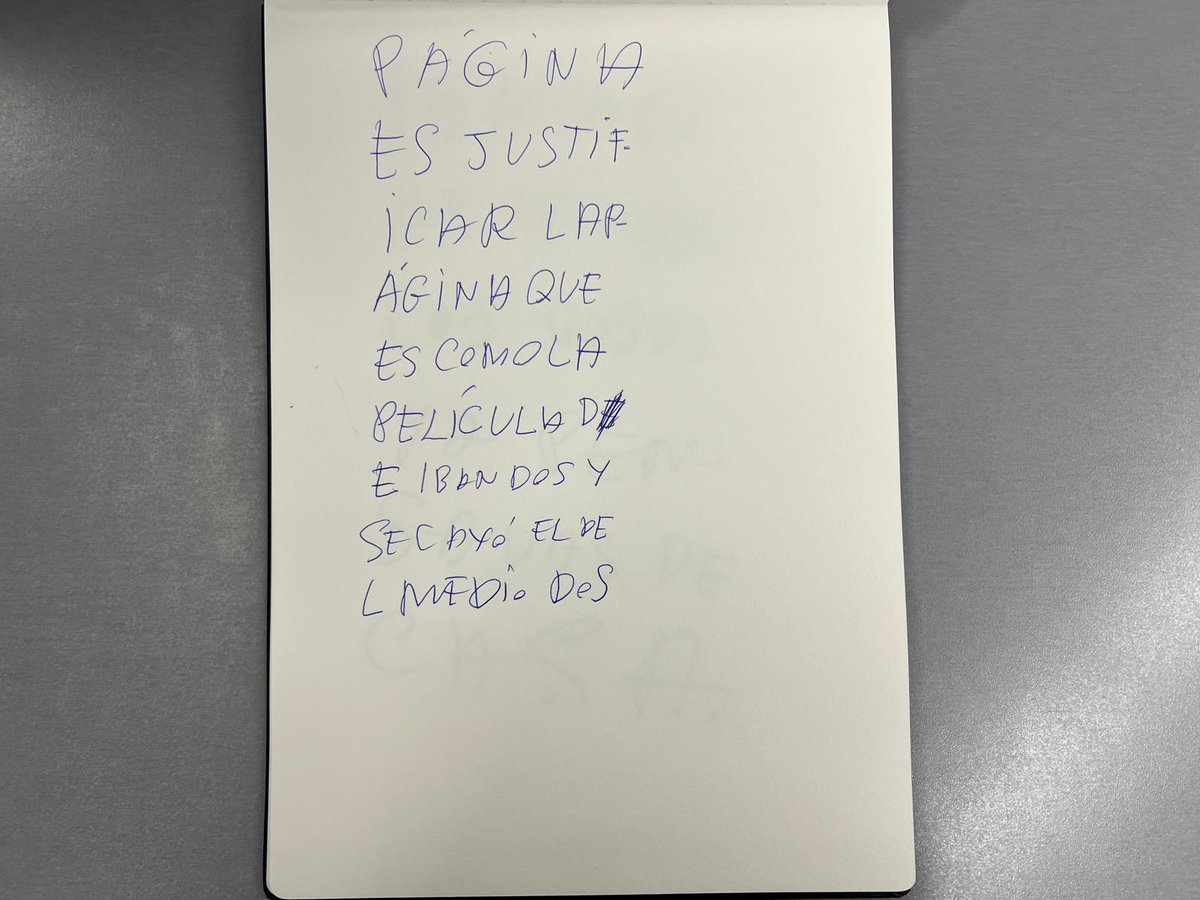 PÁGINA
ES JUSTIF-
ICAR LAP-
ÁGINA QUE
ES COMO LA
PELÍCULA D
E IBAN DOS Y
SE CAYÓ EL DE
L MEDIO DOS